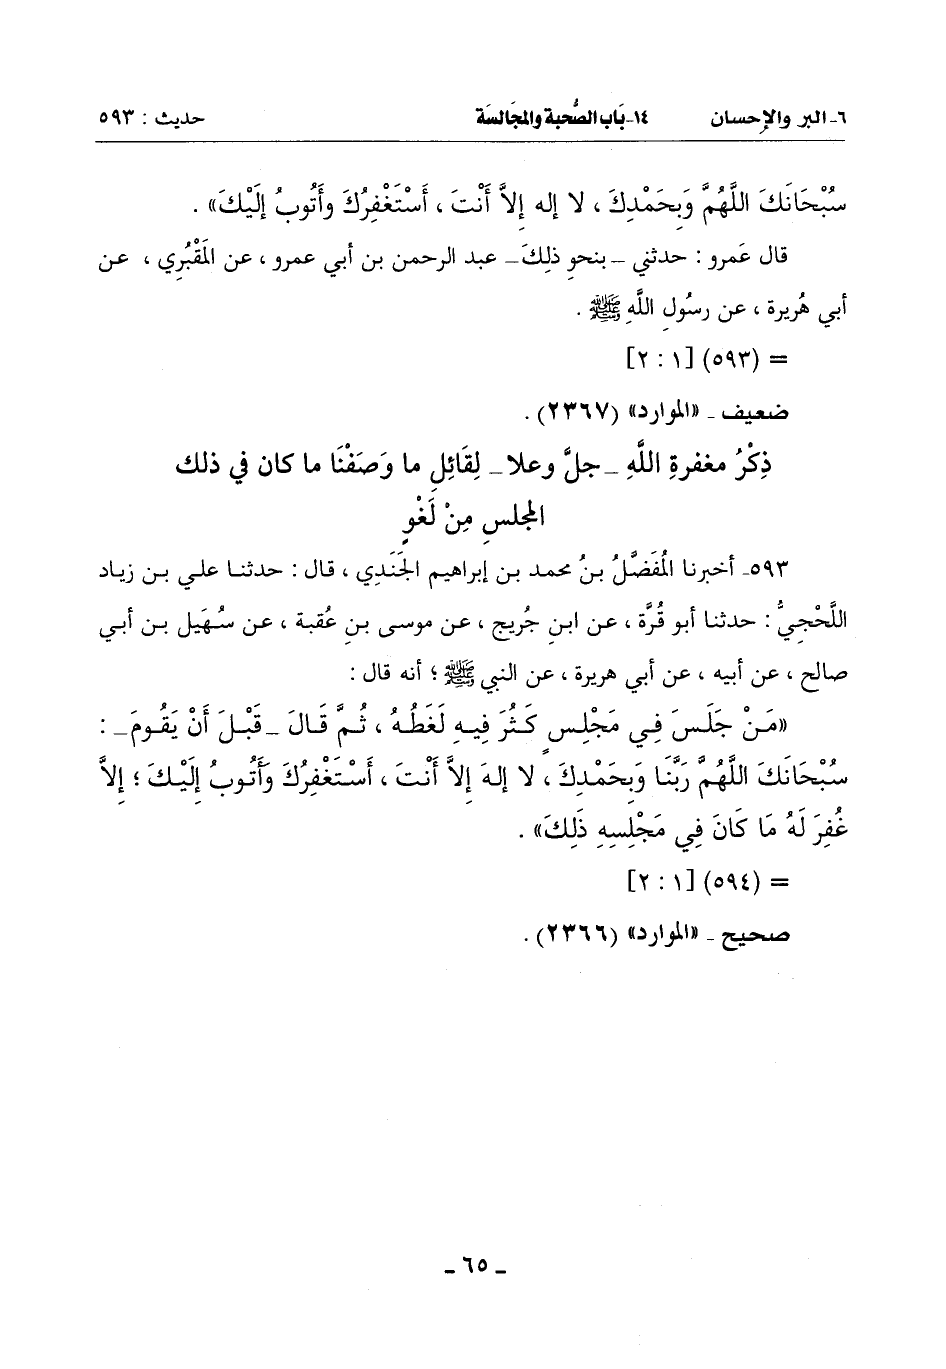 ٦- البر والإحسان ١٤-بَاب الصُّحبة والمجَالسَة حديث : ٥٩٣
سُبْحَانَكَ اللَّهُمَّ وَبِحَمْدِكَ ، لا إله إِلاَّ أَنْتَ ، أَسْتَغْفِرُكَ وأَتُوبُ إِلَيْكَ» .
قال عَمرو : حدثني ـ بنحوِ ذلِكَ ـ عبد الرحمن بن أبي عمرو ، عن المَقْبُرِي ، عن
أبي هُريرة ، عن رسُولِ اللَّهِ ﷺ .
= (٥٩٣) [١ : ٢]
ضعيف ـ «الموارد» (٢٣٦٧) .
ذِكْرُ مغفرةِ اللَّهِ ـ جلَّ وعلا ـ لِقَائِلِ ما وَصَفْنَا ما كان في ذلك
المجلسِ مِنْ لَغْوٍ
٥٩٣ـ أخبرنا المُفَضَّلُ بنُ محمد بن إبراهيم الجَنَدِي ، قال : حدثنا علي بن زياد
اللَّحْجِيُّ : حدثنا أبو قُرَّة ، عن ابنِ جُريج ، عن موسى بنِ عُقبة ، عن سُهَيل بن أبي
صالح ، عن أبيه ، عن أبي هريرة ، عن النبي ﷺ ؛ أنه قال :
«مَنْ جَلَسَ فِي مَجْلِسٍ كَثُرَ فِيهِ لَغَطُهُ ، ثُمَّ قَالَ ـ قَبْلَ أَنْ يَقُومَ ـ :
سُبْحَانَكَ اللَّهُمَّ رَبَّنَا وَبِحَمْدِكَ ، لا إِلهَ إِلاَّ أَنْتَ ، أَسْتَغْفِرُكَ وَأَتُوبُ إِلَيْكَ ؛ إِلاَّ
غُفِرَ لَهُ مَا كَانَ فِي مَجْلِسِهِ ذَلِكَ» .
= (٥٩٤) [١ : ٢]
صحيح ـ «الموارد» (٢٣٦٦) .
ـ ٦٥ ـ